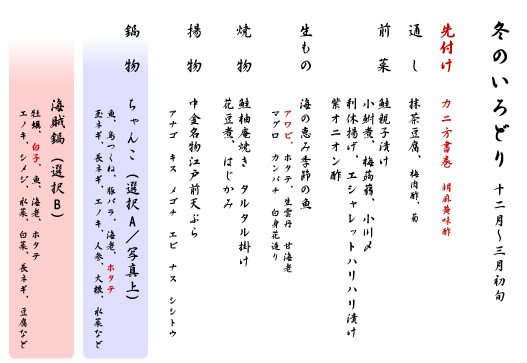 冬のいろどり 十二月～三月初旬
先付け カニ方書巻 胡麻黄味酢
通し 抹茶豆腐、梅肉酢、菊
前菜 鮭親子漬け
小鮒煮、梅蒟蒻、小川〆
利休揚げ、エシャレットハリハリ漬け
紫オニオン酢
生もの 海の恵み季節の魚
アワビ、ホタテ、生雲丹 甘海老
マグロ カンパチ 白身花造り
焼物 鮭柚庵焼き タルタル掛け
花豆煮、はじかみ
揚物 中金名物江戸前天ぷら
アナゴ キス メゴチ エビ ナス シシトウ
鍋物 ちゃんこ（選択A／写真上）
魚、鳥つくね、豚バラ、海老、ホタテ
玉ネギ、長ネギ、エノキ、人参、大根、水菜など
海賊鍋（選択B）
牡蠣、白子、魚、海老、ホタテ
エノキ、シメジ、水菜、白菜、長ネギ、豆腐など